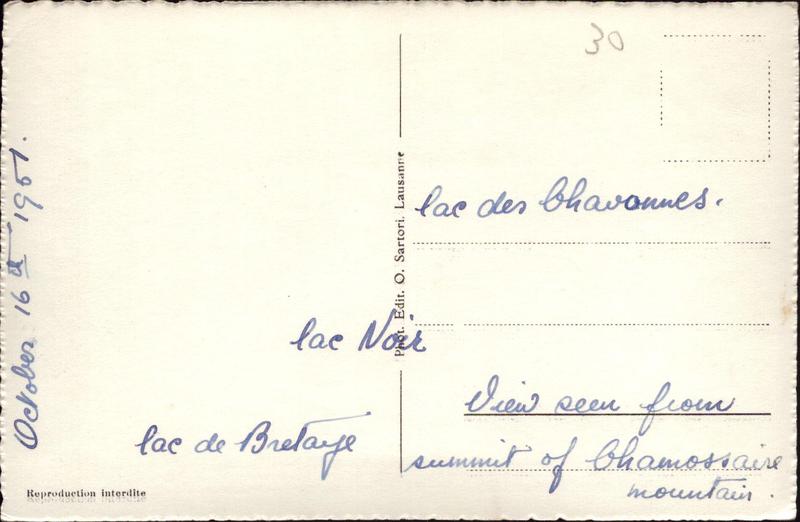 30
October 16th 1951.
Phot. Edit. O. Sartori. Lausanne
lac des Chavonnes.
lac Noir
lac de Bretaye
View seen from
summit of Chamossaire
mountain.
Reproduction interdite